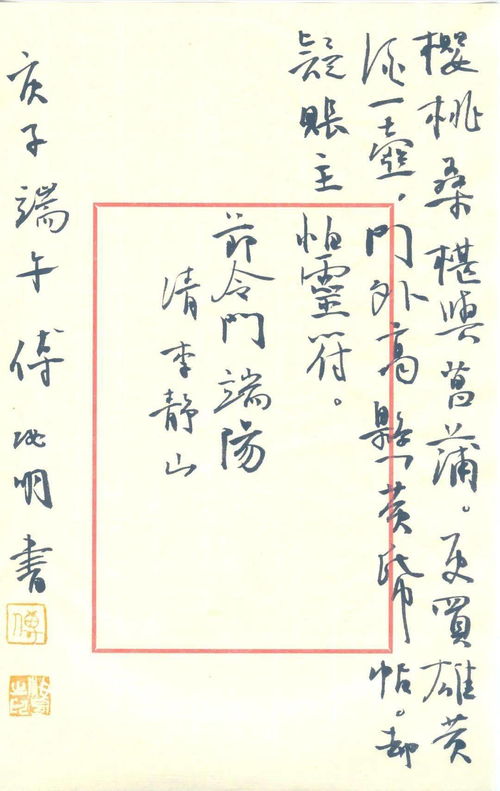 櫻桃桑椹與菖蒲。更買雄黃
酒一壺,門外高懸黃帋帖。却
疑賬主怕靈符。
節令門端陽
清李靜山
庚子端午傅明書
傅